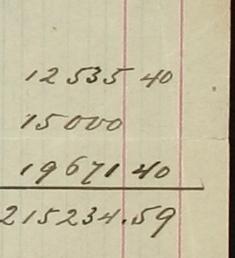 12535 40
15000
19671 40
215234.59